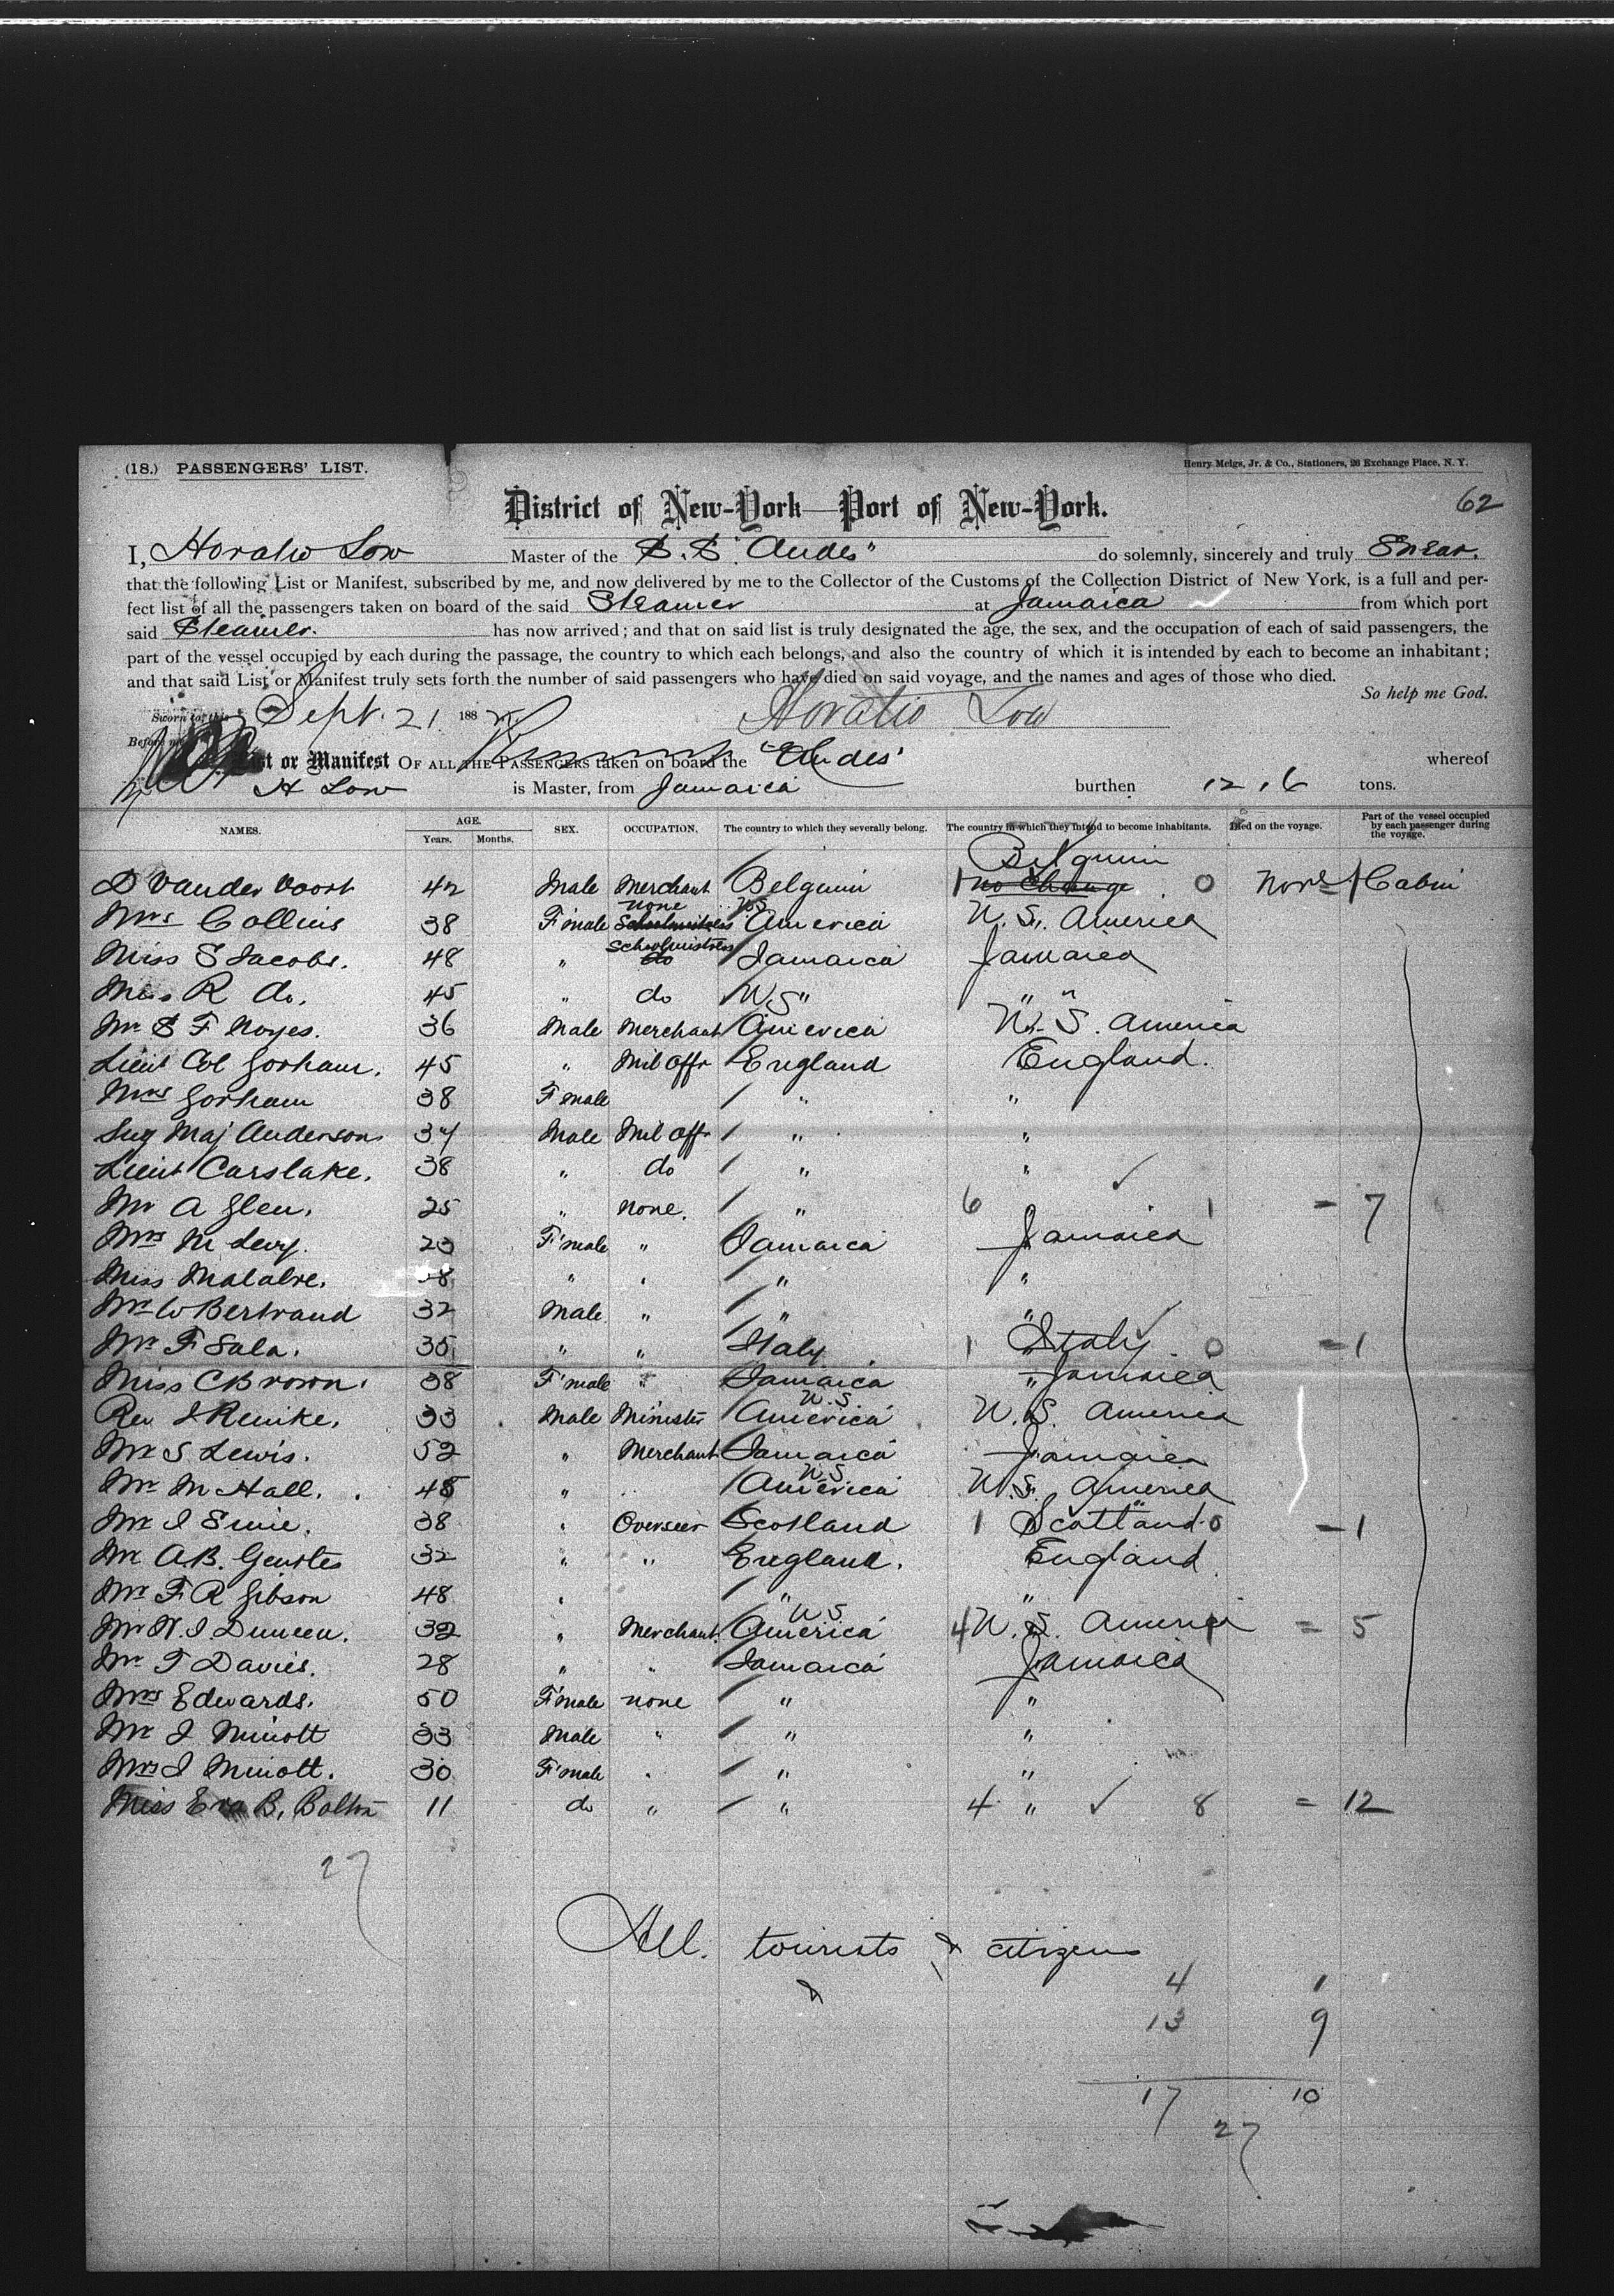 (18.) PASSENGERS' LIST.
Henry Meigs, Jr. & Co., Stationers, 26 Exchange Place, N. Y.
District of New-York—Port of New-York.
62
I, Horatio Low Master of the S. S. "Andes" do solemnly, sincerely and truly Swear.
that the following List or Manifest, subscribed by me, and now delivered by me to the Collector of the Customs of the Collection District of New York, is a full and per-
fect list of all the passengers taken on board of the said Steamer at Jamaica from which port
said Steamer. has now arrived; and that on said list is truly designated the age, the sex, and the occupation of each of said passengers, the
part of the vessel occupied by each during the passage, the country to which each belongs, and also the country of which it is intended by each to become an inhabitant;
and that said List or Manifest truly sets forth the number of said passengers who have died on said voyage, and the names and ages of those who died.
So help me God.
Sworn to this Sept. 21 188 Horatio Low
Before me
List or Manifest OF ALL THE PASSENGERS taken on board the "Andes" whereof
H Low is Master, from Jamaica burthen tons.
NAMES. AGE. Years. Months. SEX. OCCUPATION. The country to which they severally belong. The country in which they intend to become inhabitants. Died on the voyage. Part of the vessel occupied by each passenger during the voyage.
Belguim
D Vander Voort 42 Male Merchant Belguim 1 no Change 0 None 1 Cabin
none U.S
Mrs Collins 38 F'male Schoolmistress America U. S. America
Schoolmistress
Miss S Jacobs. 48 " do Jamaica Jamaica
Miss R do. 45 " do U.S " " "
Mr S F Noyes. 36 Male Merchant America U. S. America
Lieut Col Gorham. 45 " Mil Offr England England.
Mrs Gorham 38 F'male " "
Surg Maj Anderson 34 Male Mil Offr " "
Lieut Carslake. 38 " do " "
Mr A Glen. 25 " none. " 6 1 = 7
Mrs M Levy. F'male " Jamaica Jamaica
Miss Malabre. " " " "
Mr W Bertrand 32 Male " " "
Mr F Sala. 35 " " Italy 1 Italy 0 = 1
Miss C Brown. 38 F'male " Jamaica " Jamaica
U.S
Rev J Reinke. 33 Male Minister America U. S. America
Mr S Lewis. 52 " Merchant Jamaica Jamaica
U.S
Mr M Hall. 48 " America U.S. America
Mr J 38 " Overseer Scotland 1 Scotland 0 = 1
Mr A B. 32 " " England. England
Mr F R Gibson 48 " " "
U S
Mr Duncan. 32 " Merchant. America 4 U. S. America 1 = 5
Mr T Davis. 28 " " Jamaica Jamaica
Mrs Edwards. 50 F'male none " "
Mr J Minott 33 Male " " "
Mrs J Minott. 30 F'male " " "
Miss Eva B. Bolton 11 do " " 4 " 8 = 12
27
All. tourists & citizens
&
4 1
13 9
17 10
27